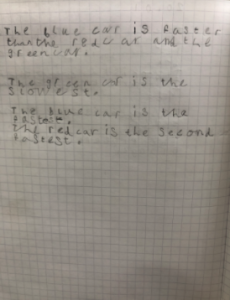 The blue car is faster
than the red car and the
green car.
The green car is the
slowest.
The blue car is the
fastest.
the red car is the second
fastest.